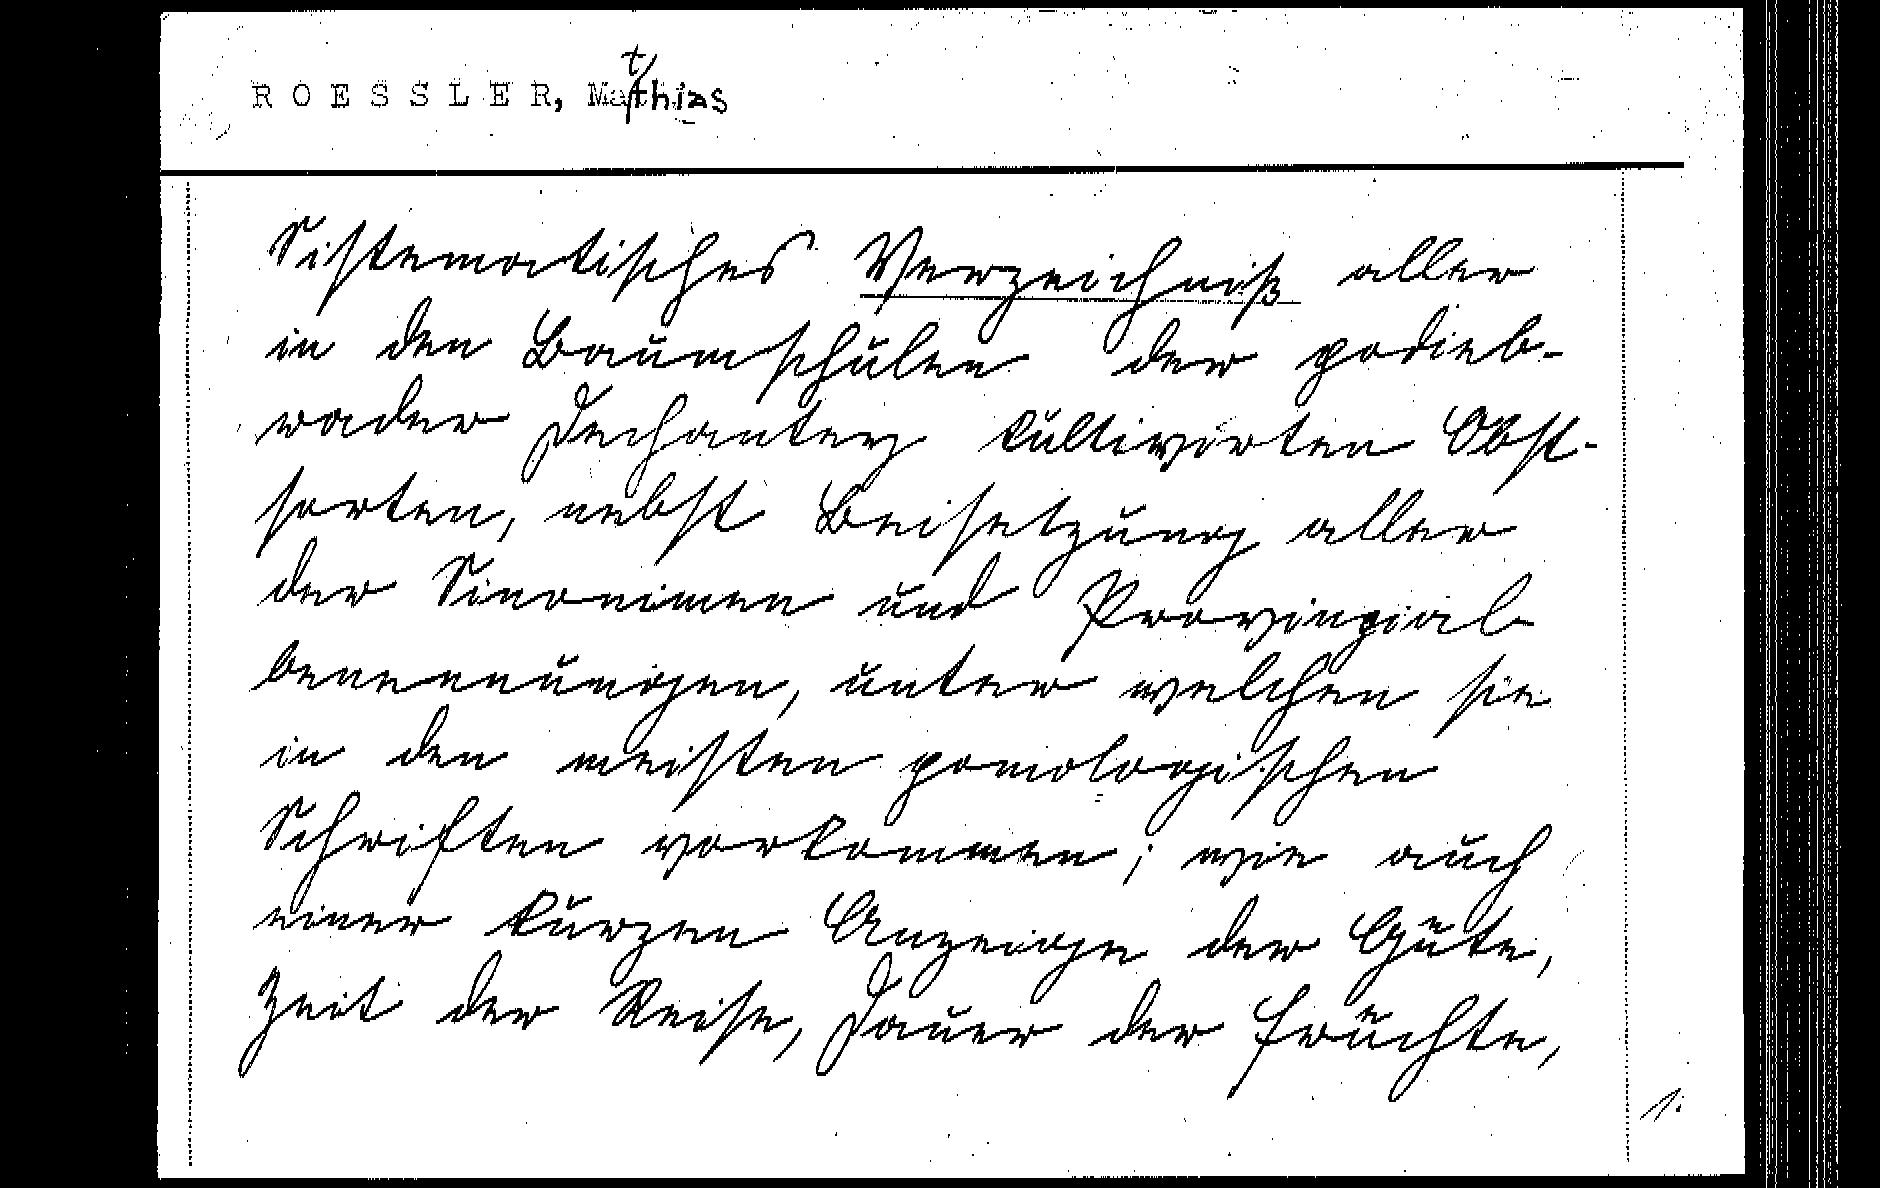 ROESSLER, Matthias
Sistematisches Verzeichniß aller
in den Baumschulen der podieb-
rader Dechantey kultivirten Obst-
sorten, nebst Beisetzung aller
der Sinonimen und Provinzial
benennungen, unter welchen sie
in den meisten pomologischen
Schriften vorkommen; wie auch
einer kurzen Anzeige der Güte,
Zeit der Reife, Dauer der Früchte,
1.